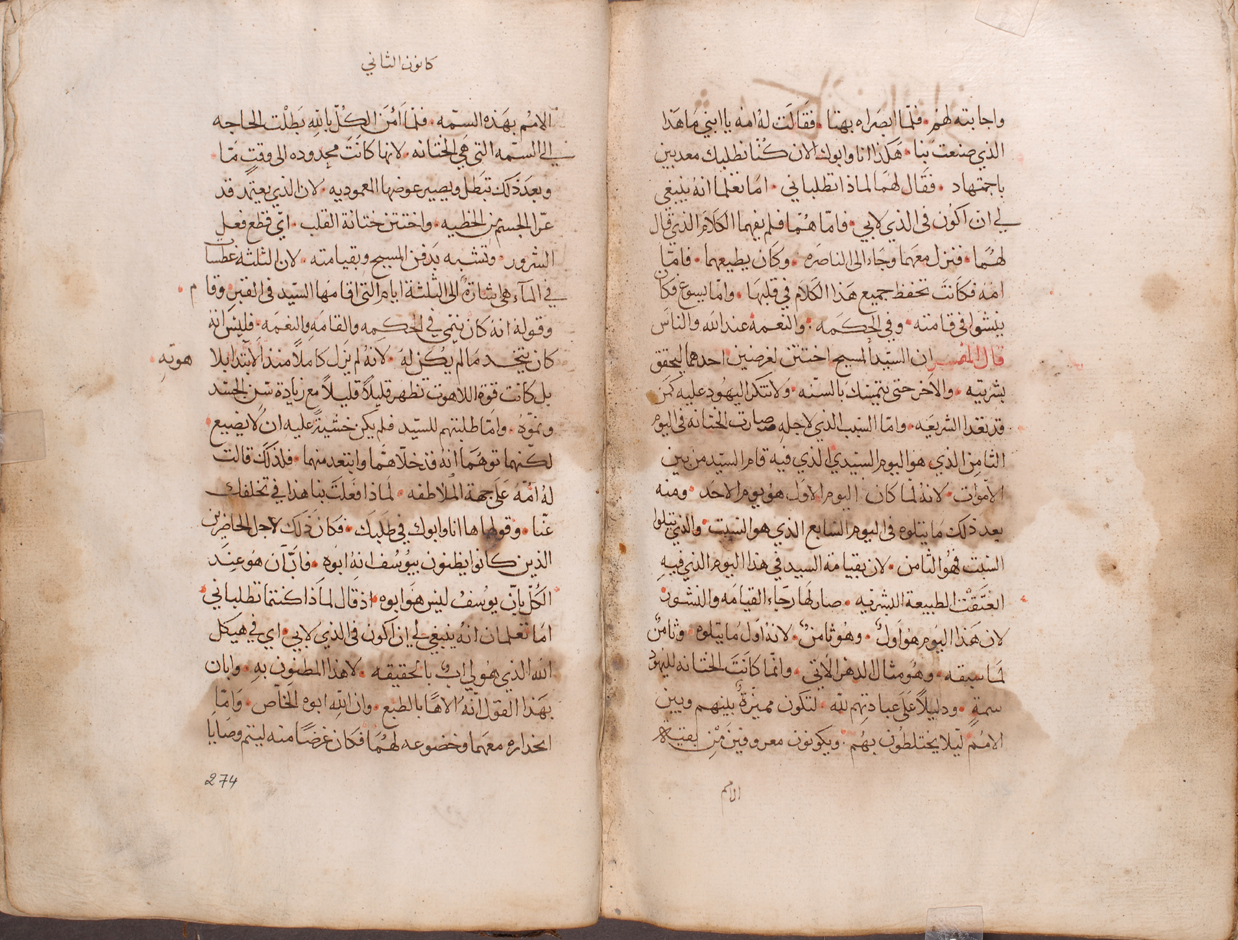 واجابته لهم • فلما ابصراه بهتا • فقالت له امه يا ابني ما هذا
الذي صنعت بنا • هكذا انا وابوك الان كنا نطلبك معدبين
باجتهاد • فقال لهما لماذا تطلباني • اما تعلما انه ينبغي
لي ان اكون في الذي لابي • فاما هما فلم يفهما الكلام الذي قال
لهما • فنزل معهما وجاء الى الناصره • وكان يطيعهما • فامّا
امه فكانت تحفظ جميع هذا الكلام في قلبها • واما يسوع فكان
ينشوا في قامته • وفي الحكمه • والنعمة عند الله والناس
قال المفسر ان السيد المسيح اختتن لغرضين احدهما ليحقق
بشريته • والاخر حتى يتمسك بالسنه • ولا تنكر اليهود عليه كمن
قد تعدا الشريعه • واما السبب الذي لاجله صارت الختانه في اليوم
الثامن الذي هو اليوم السيدي الذي فيه قام السيد من بين
الاموات • لانه لما كان اليوم الاول هو يوم الاحد • ومنه
بعد ذلك ما يتلوه في اليوم السابع الذي هو السبت • والذي يتلوا
السبت فهو الثامن • لان بقيامة السيد في هذا اليوم الذي فيه
انعتقت الطبيعة البشريه • صار لها رجاء القيامه والنشور
لان هذا اليوم هو اول • وهو ثامن • لانه اول ما يتلوه • وثامن
لما سبقه • وهو مثال الدهر الاتي • وانما كانت الختانه لليهود
سمة • ودليلاً على عبادتهم لله • لتكون مميزة بينهم وبين
الامم ليلا يختلطون بهم • ويكونون معروفين من بقية
الامم
كانون الثاني
الامم بهذه السمه • فلما امن الكل بالله بطلت الحاجه
الى السمه التي هي الختانه • لانها كانت محدوده الى وقت ما •
وبعد ذلك تبطل ويصير عوضها المعموديه • لان الذي يعتمد قد
عرّا الجسم من الخطيه • واختتن ختانة القلب • اي قطع فعل
الشرور • وتشبه بدفن المسيح وبقيامته • لان الثلثة غطسا
في الماء هي اشارة الى الثلثة ايام التي اقامها السيد في القبر وقام •
وقوله انه كان ينمي في الحكمه والقامه والنعمه • فليس انه
كان يتخد ما لم يكن له • لانه لم يزل كاملاً منذ الابتدا بلا هويّه •
بل كانت قوة اللاهوت تظهر قليلاً قليلاً مع زيادة سن الجسد
ونموّه • واما طلبتهم للسيّد فلم يكن خشية عليه ان لا يضيع •
لكنهما توهما انه قد خلاهما وابتعد منهما • فلذلك قالت
له امه على جهة الملاطفه • لماذا فعلت بنا هذا في تخلفك
عنا • وقولها ها انا وابوك في طلبك • فكان ذلك لاجل الحاضرين
الذين كانوا يظنون بيوسف انه ابوه • فابان هو عند
الكل بان يوسف ليس هو ابوه • اذ قال لماذا كنتما تطلباني •
اما تعلمان انه ينبغي لي ان اكون في الذي لابي • اي في هيكل
الله الذي هو لي اب بالحقيقه • لا هذا المظنون به • وابان
بهذا القول انه الاهاً بالطبع • وان الله ابوه الخاص • واما
انحداره معهما وخضوعه لهما فكان غرضاً منه ليتم وصايا
274